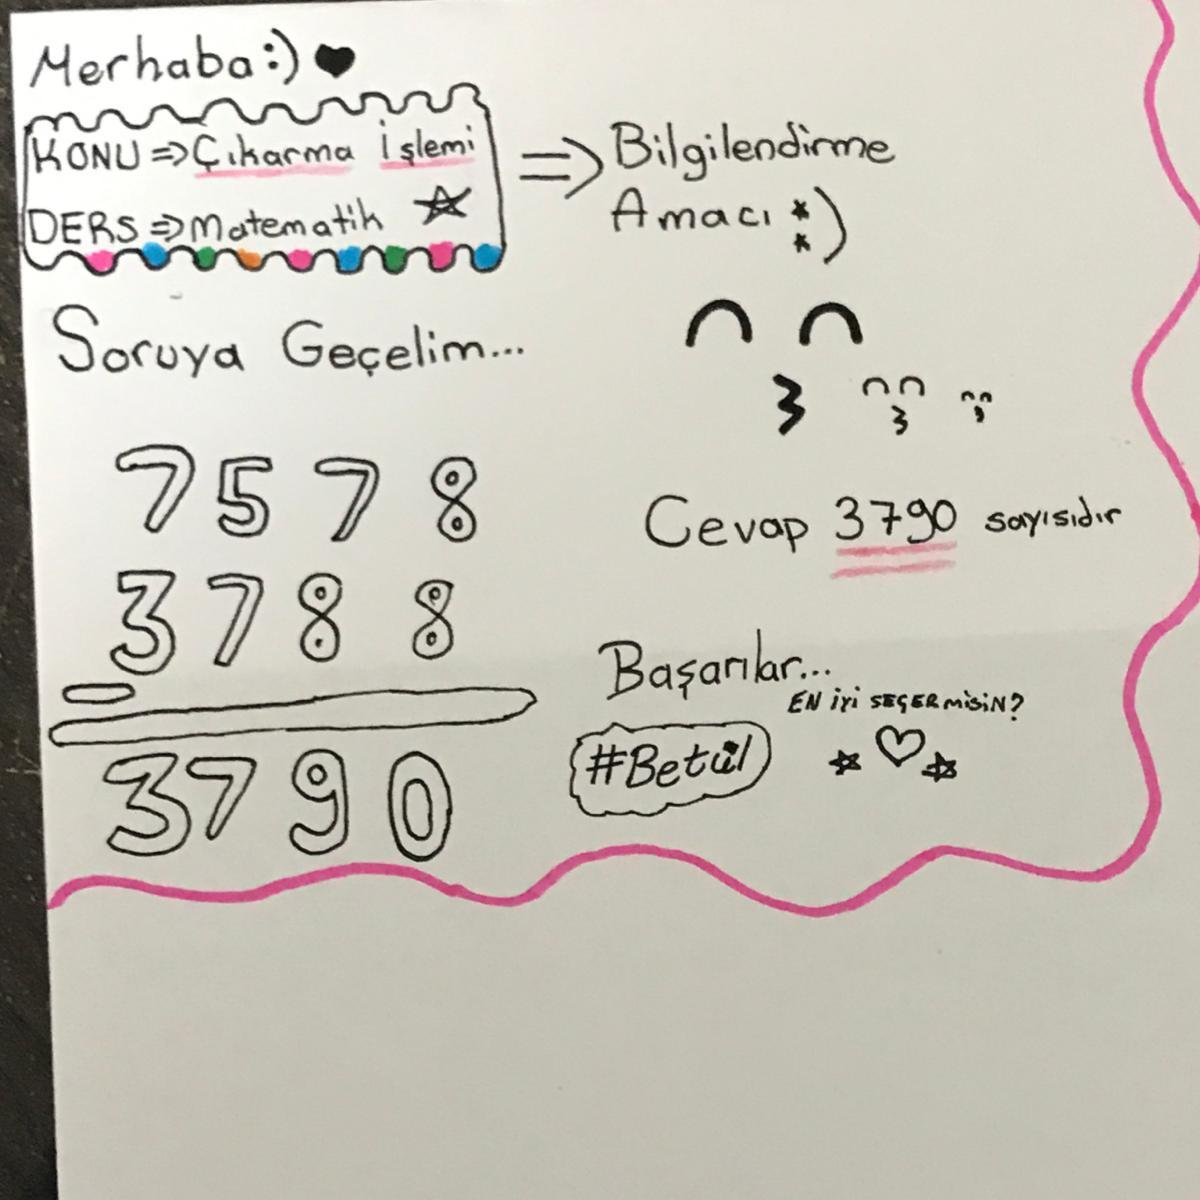 Merhaba:) ♥
KONU => Çıkarma İşlemi
DERS => Matematik
=> Bilgilendirme
Amacı :)
Soruya Geçelim...
7578
3788
-
3790
Cevap 3790 sayısıdır
Başarılar...
EN iyi SEÇERmisiN?
#Betül